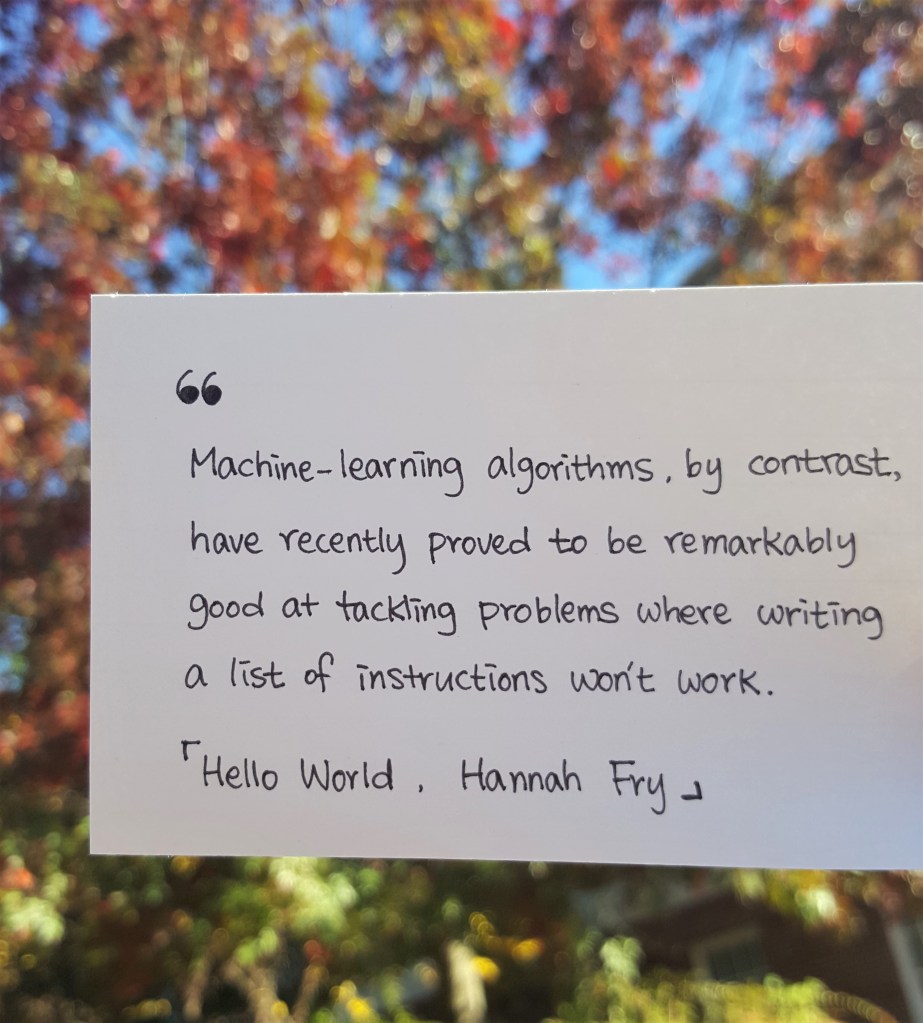 “
Machine-learning algorithms, by contrast,
have recently proved to be remarkably
good at tackling problems where writing
a list of instructions won't work.
「Hello World, Hannah Fry」